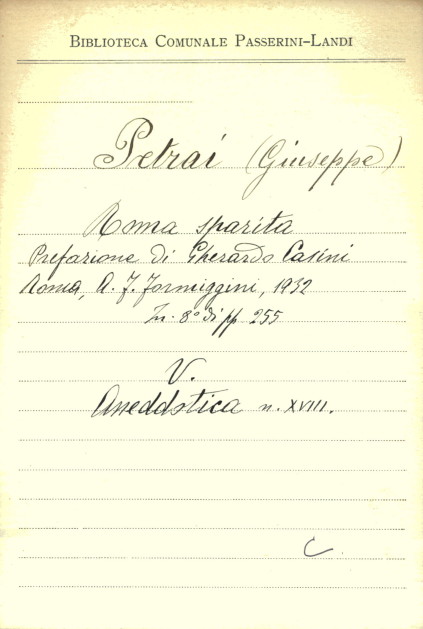 BIBLIOTECA COMUNALE PASSERINI-LANDI
Petrai (Giuseppe)
Roma sparita
Prefazione di Gherardo Casini
Roma, A. F. Formiggini, 1932
In-8° di pp 255
V.
Aneddotica n. XVIII.
C